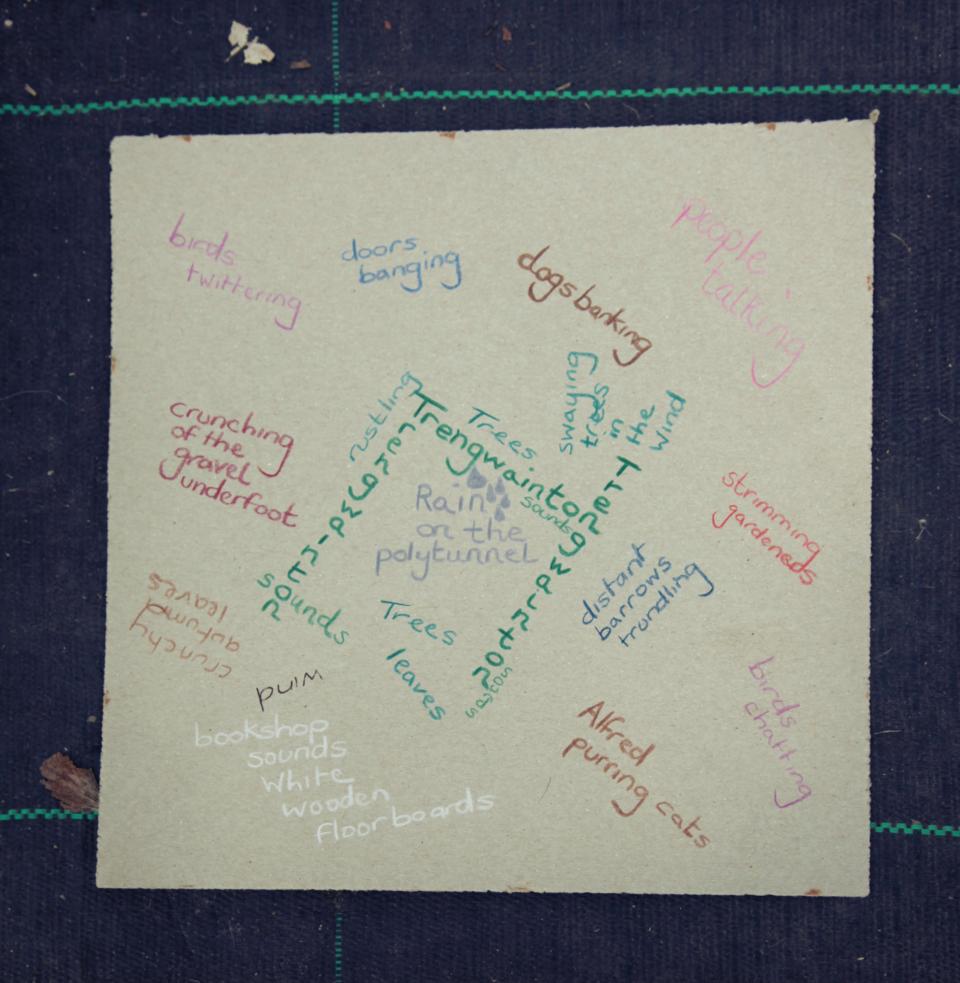 birds
twittering
doors
banging
dogs barking
people
talking
rustling
Trees
swaying
trees
in
the
wind
Trengwainton
sounds
Trengwainton
sounds
Trengwainton
sounds
crunching
of the
gravel
underfoot
Rain
on the
polytunnel
strimming
gardeners
distant
barrows
trundling
crunchy
autumn
leaves
Trees
leaves
wind
bookshop
sounds
White
wooden
floorboards
Alfred
purring cats
birds
chatting